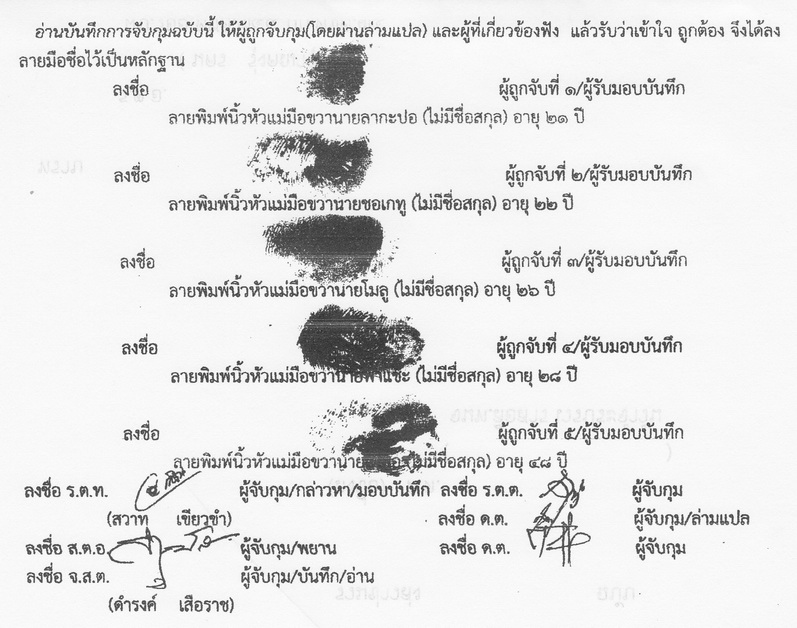 อ่านบันทึกการจับกุมฉบับนี้ ให้ผู้ถูกจับกุม(โดยผ่านล่ามแปล) และผู้ที่เกี่ยวข้องฟัง แล้วรับว่าเข้าใจ ถูกต้อง จึงได้ลง
ลายมือชื่อไว้เป็นหลักฐาน
ลงชื่อ ผู้ถูกจับที่ ๑/ผู้รับมอบบันทึก
ลายพิมพ์นิ้วหัวแม่มือขวานายลากะปอ (ไม่มีชื่อสกุล) อายุ ๒๑ ปี
ลงชื่อ ผู้ถูกจับที่ ๒/ผู้รับมอบบันทึก
ลายพิมพ์นิ้วหัวแม่มือขวานายชอเกทู (ไม่มีชื่อสกุล) อายุ ๒๒ ปี
ลงชื่อ ผู้ถูกจับที่ ๓/ผู้รับมอบบันทึก
ลายพิมพ์นิ้วหัวแม่มือขวานายโมลู (ไม่มีชื่อสกุล) อายุ ๒๖ ปี
ลงชื่อ ผู้ถูกจับที่ ๔/ผู้รับมอบบันทึก
ลายพิมพ์นิ้วหัวแม่มือขวา (ไม่มีชื่อสกุล) อายุ ๒๘ ปี
ลงชื่อ ผู้ถูกจับที่ ๕/ผู้รับมอบบันทึก
ลายพิมพ์นิ้วหัวแม่มือขวา (ไม่มีชื่อสกุล) อายุ ๔๘ ปี
ลงชื่อ ร.ต.ท. ผู้จับกุม/กล่าวหา/มอบบันทึก ลงชื่อ ร.ต.ต. ผู้จับกุม
(สวาท เขียวขำ) ลงชื่อ ด.ต. ผู้จับกุม/ล่ามแปล
ลงชื่อ ส.ต.อ ผู้จับกุม/พยาน ลงชื่อ ด.ต. ผู้จับกุม
ลงชื่อ จ.ส.ต. ผู้จับกุม/บันทึก/อ่าน
(ดำรงค์ เสือราช)